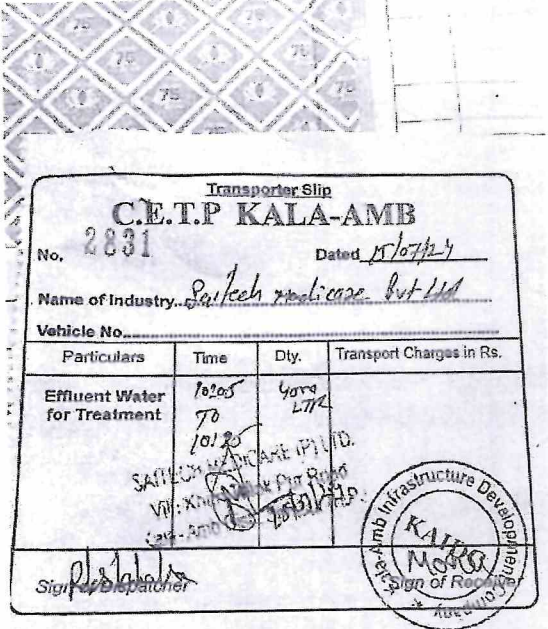 75 75 75
75 75
Transporter Slip
C.E.T.P KALA-AMB
No. 2831 Dated 15/07/24
Name of Industry. Saitech medicare Pvt Ltd
Vehicle No.
Particulars Time Dty. Transport Charges in Rs.
Effluent Water 10:05 LTR
for Treatment TO
SAITECH MEDICARE (P) LTD.
Kala-Amb Infrastructure Development Company
KAIDC
Sign of Dispatcher Sign of Receiver